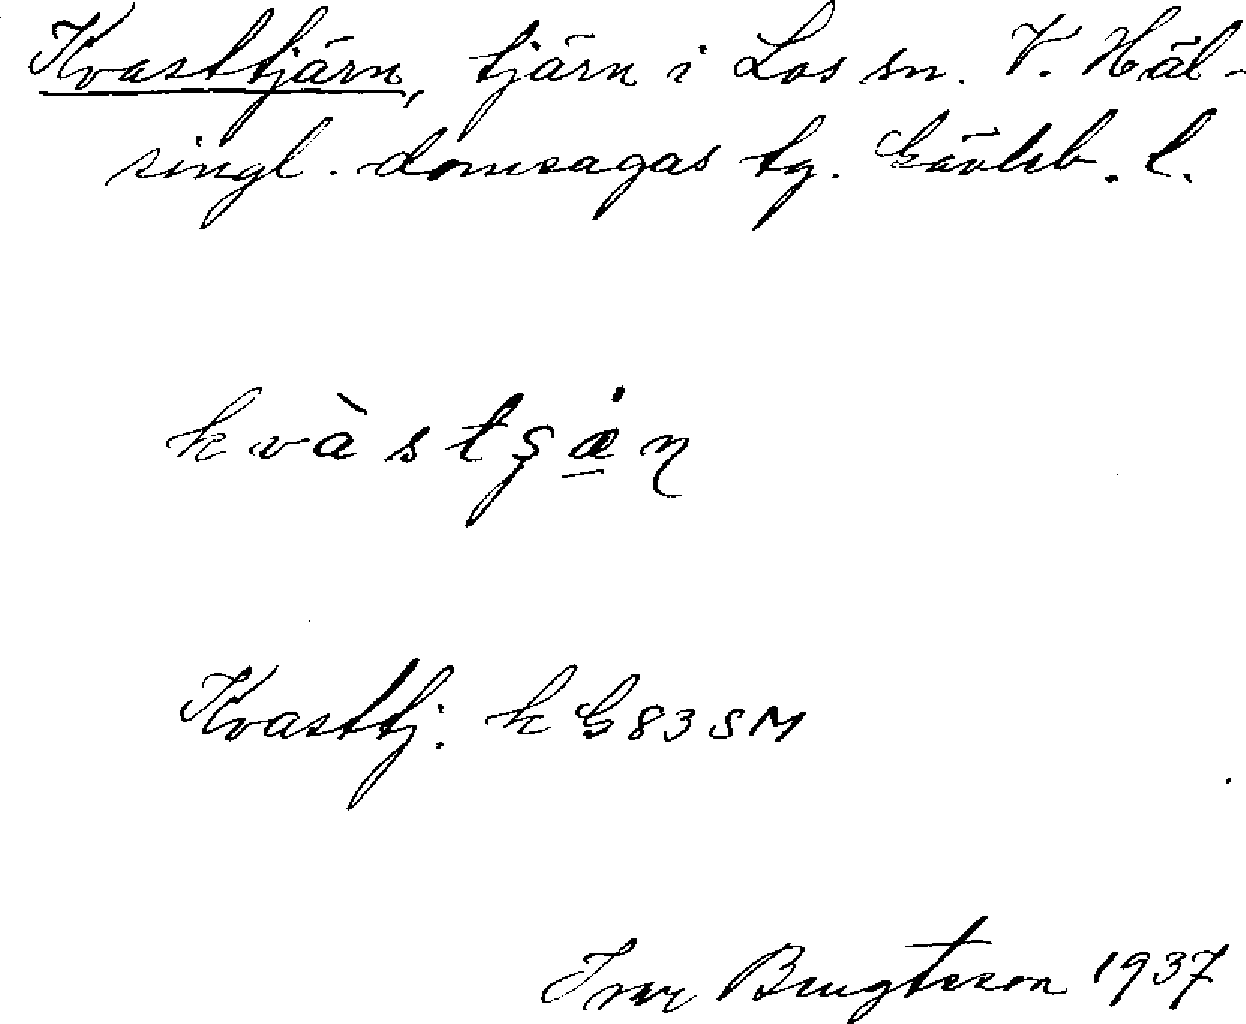 Kvasttjärn, tjärn i Los sn. V. Häl-
singl. domsagas tg. Gävleb. l.
kvàstçæ̲̇ɳ
Kvasttj. k G 83 SM
Ivar Bengtsson 1937